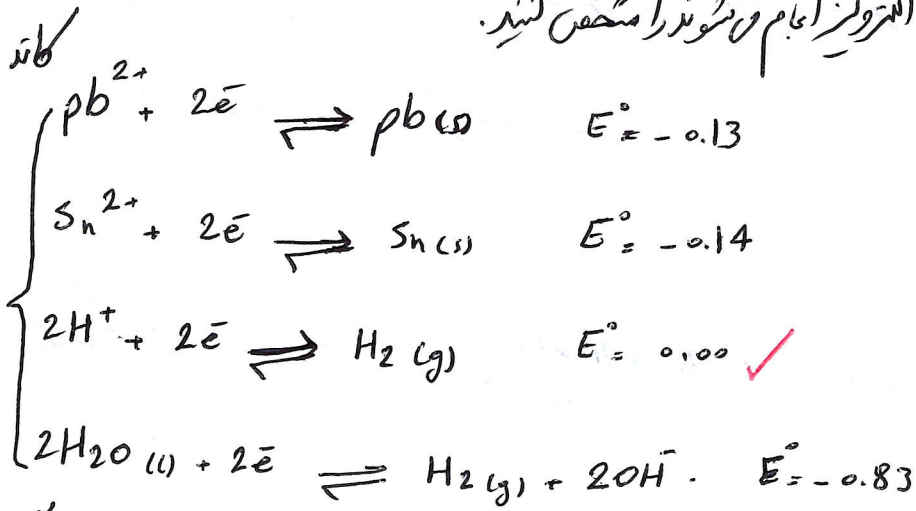 الکترولیز انجام می‌شوند را مشخص کنید.
کاتد
pb²⁺ + 2ē ⇌ pb(s) E° = -0.13
Sn²⁺ + 2ē ⇌ Sn(s) E° = -0.14
2H⁺ + 2ē ⇌ H₂(g) E° = 0.00 ✓
2H₂O(l) + 2ē ⇌ H₂(g) + 2OH⁻. E° = -0.83